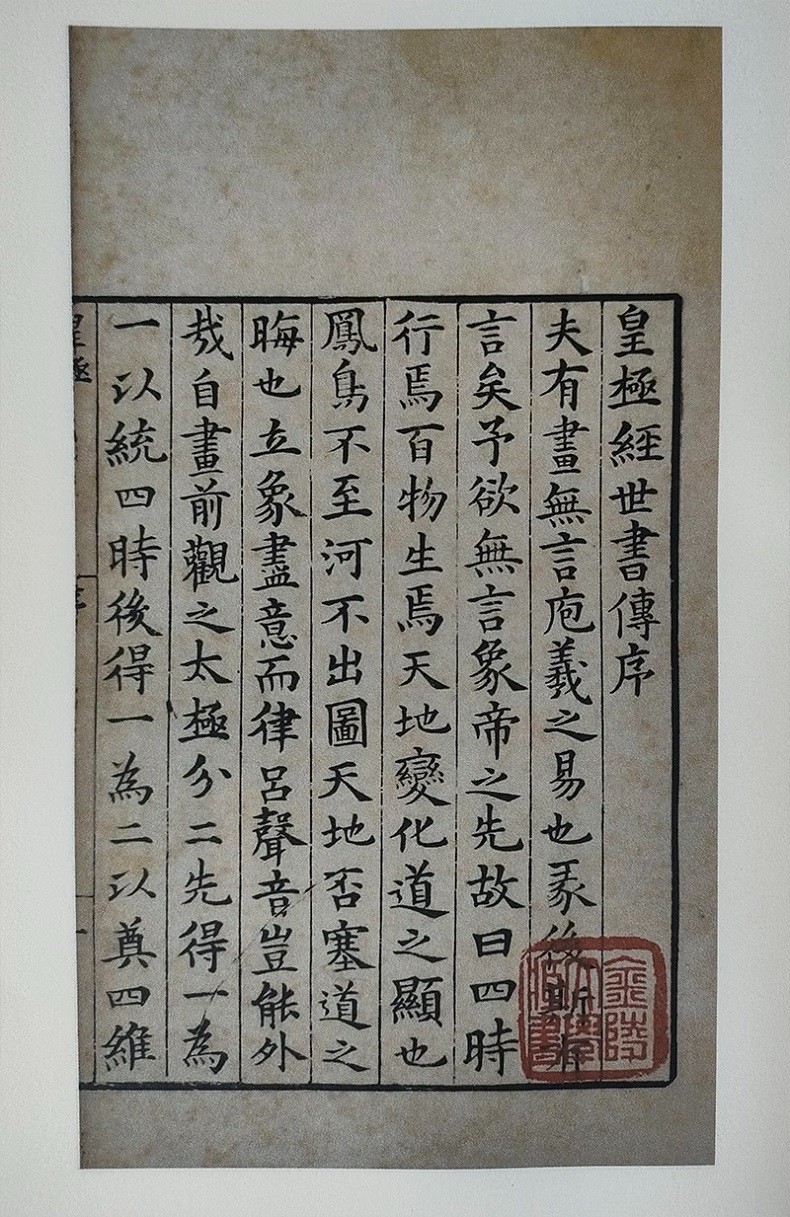 皇極經世書傳序
夫有畫無言庖羲之易也彖後斯有
言矣予欲無言象帝之先故曰四時
行焉百物生焉天地變化道之顯也
鳳鳥不至河不出圖天地否塞道之
晦也立象盡意而律呂聲音豈能外
㦲自畫前觀之太極分二先得一為
一以統四時後得一為二以奠四維
皇極
一
金陵
大學
藏書